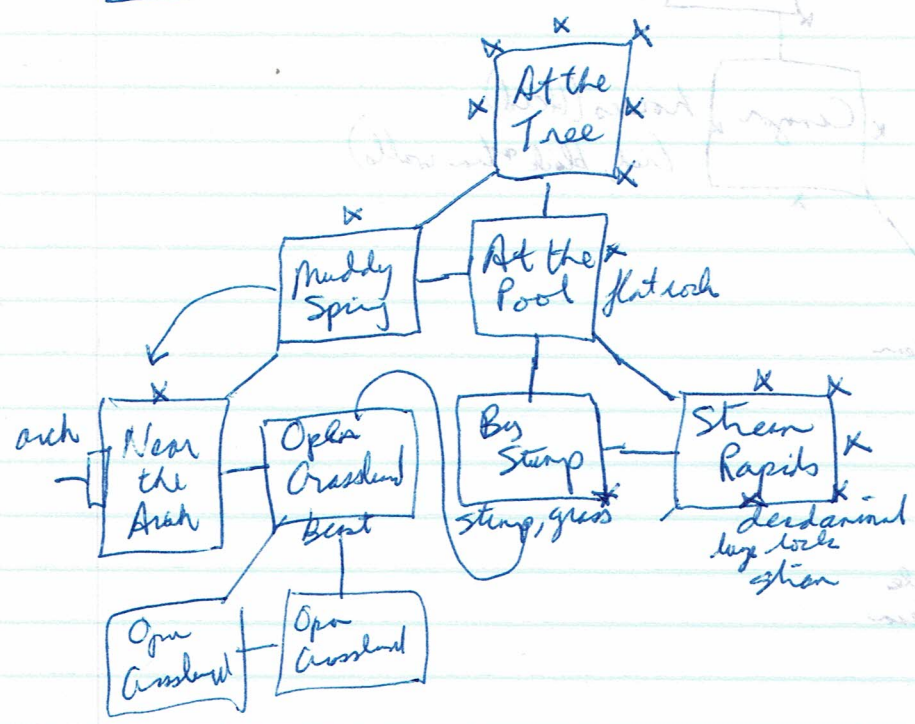 At the
Tree
Muddy
Spring
At the
Pool
flat rock
arch
Near
the
Arch
Open
Grassland
Beast
By
Stump
stump, grass
Stream
Rapids
dead animal
large rock
Open
Grassland
Open
Grassland